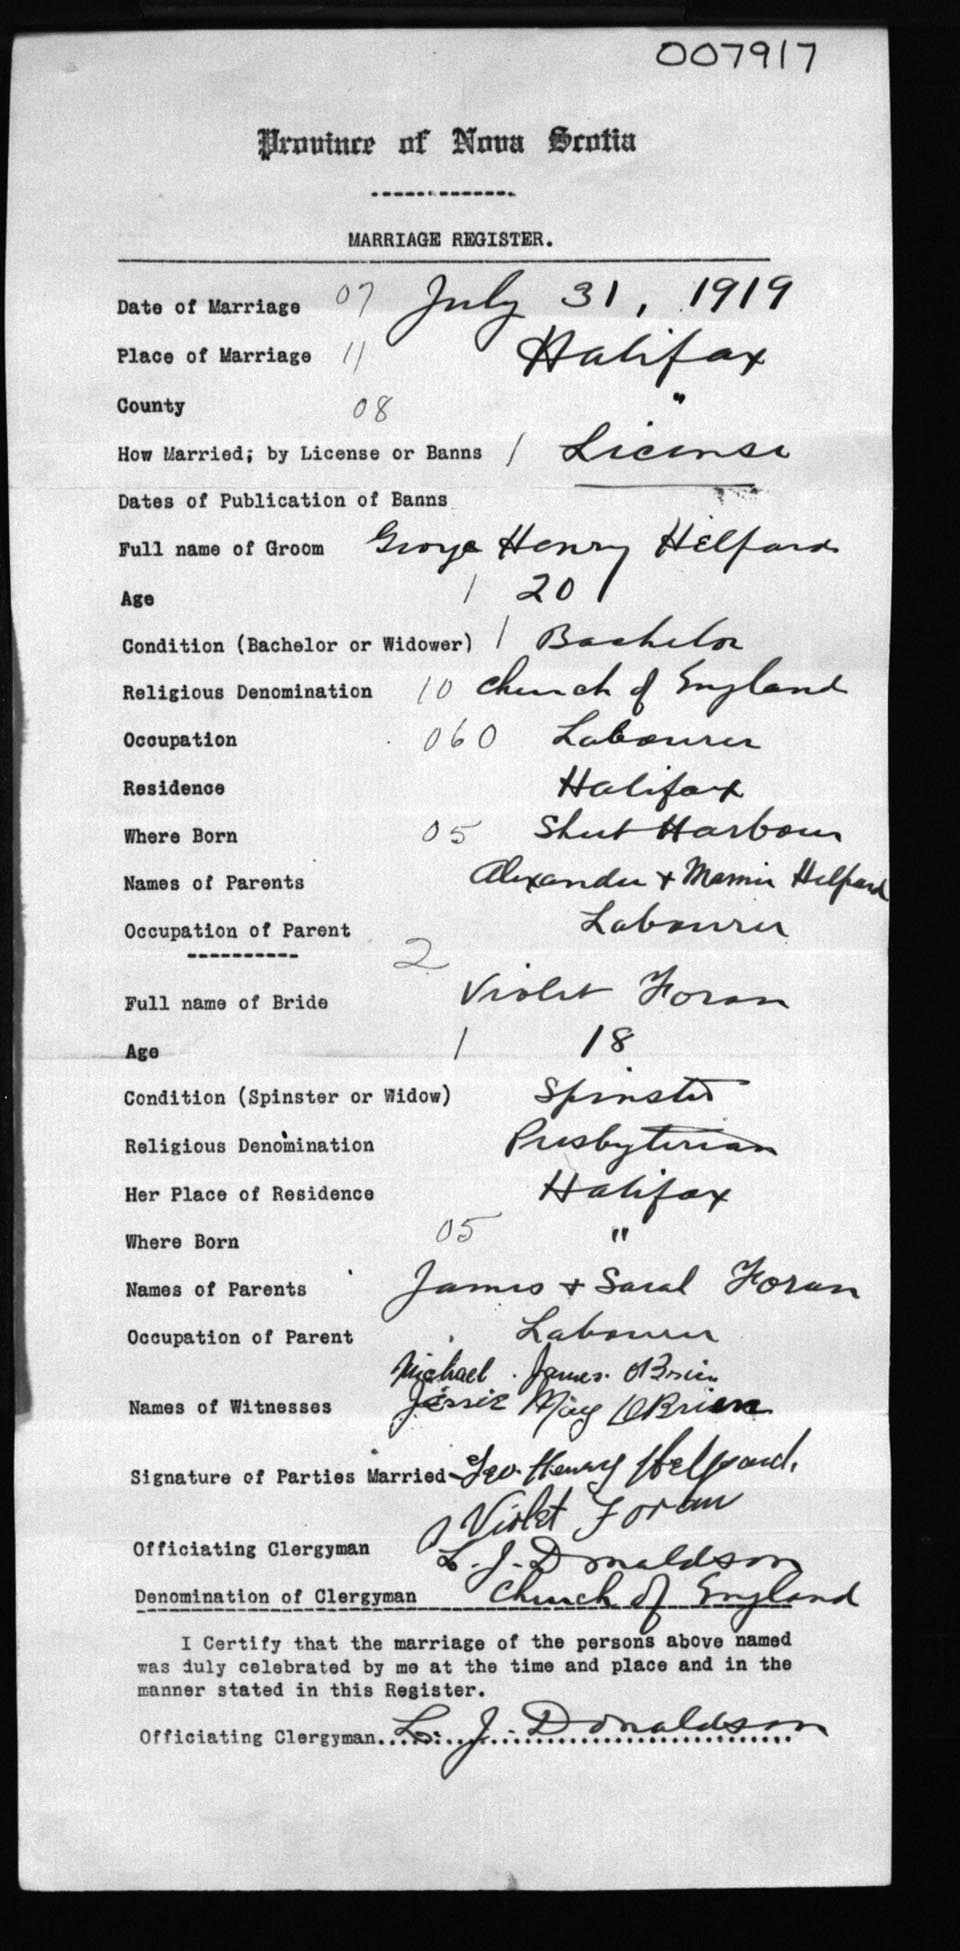 007917
Province of Nova Scotia
MARRIAGE REGISTER.
Date of Marriage 07 July 31, 1919
Place of Marriage 11 Halifax
County 08 "
How Married; by License or Banns 1 License
Dates of Publication of Banns
Full name of Groom George Henry Helpard
Age 1 20
Condition (Bachelor or Widower) 1 Bachelor
Religious Denomination 10 Church of England
Occupation 060 Labourer
Residence Halifax
Where Born 05 Sheet Harbour
Names of Parents Alexander + Mamie Helpard
Occupation of Parent Labourer
2
Full name of Bride Violet Foran
Age 1 18
Condition (Spinster or Widow) Spinster
Religious Denomination Presbyterian
Her Place of Residence Halifax
Where Born 05 "
Names of Parents James + Sarah Foran
Occupation of Parent Labourer
Michael James OBrien
Names of Witnesses Jessie May OBrien
Signature of Parties Married Geo. Henry Helpard.
Violet Foran
Officiating Clergyman L. J. Donaldson
Denomination of Clergyman Church of England
I Certify that the marriage of the persons above named
was duly celebrated by me at the time and place and in the
manner stated in this Register.
Officiating Clergyman.... L. J. Donaldson